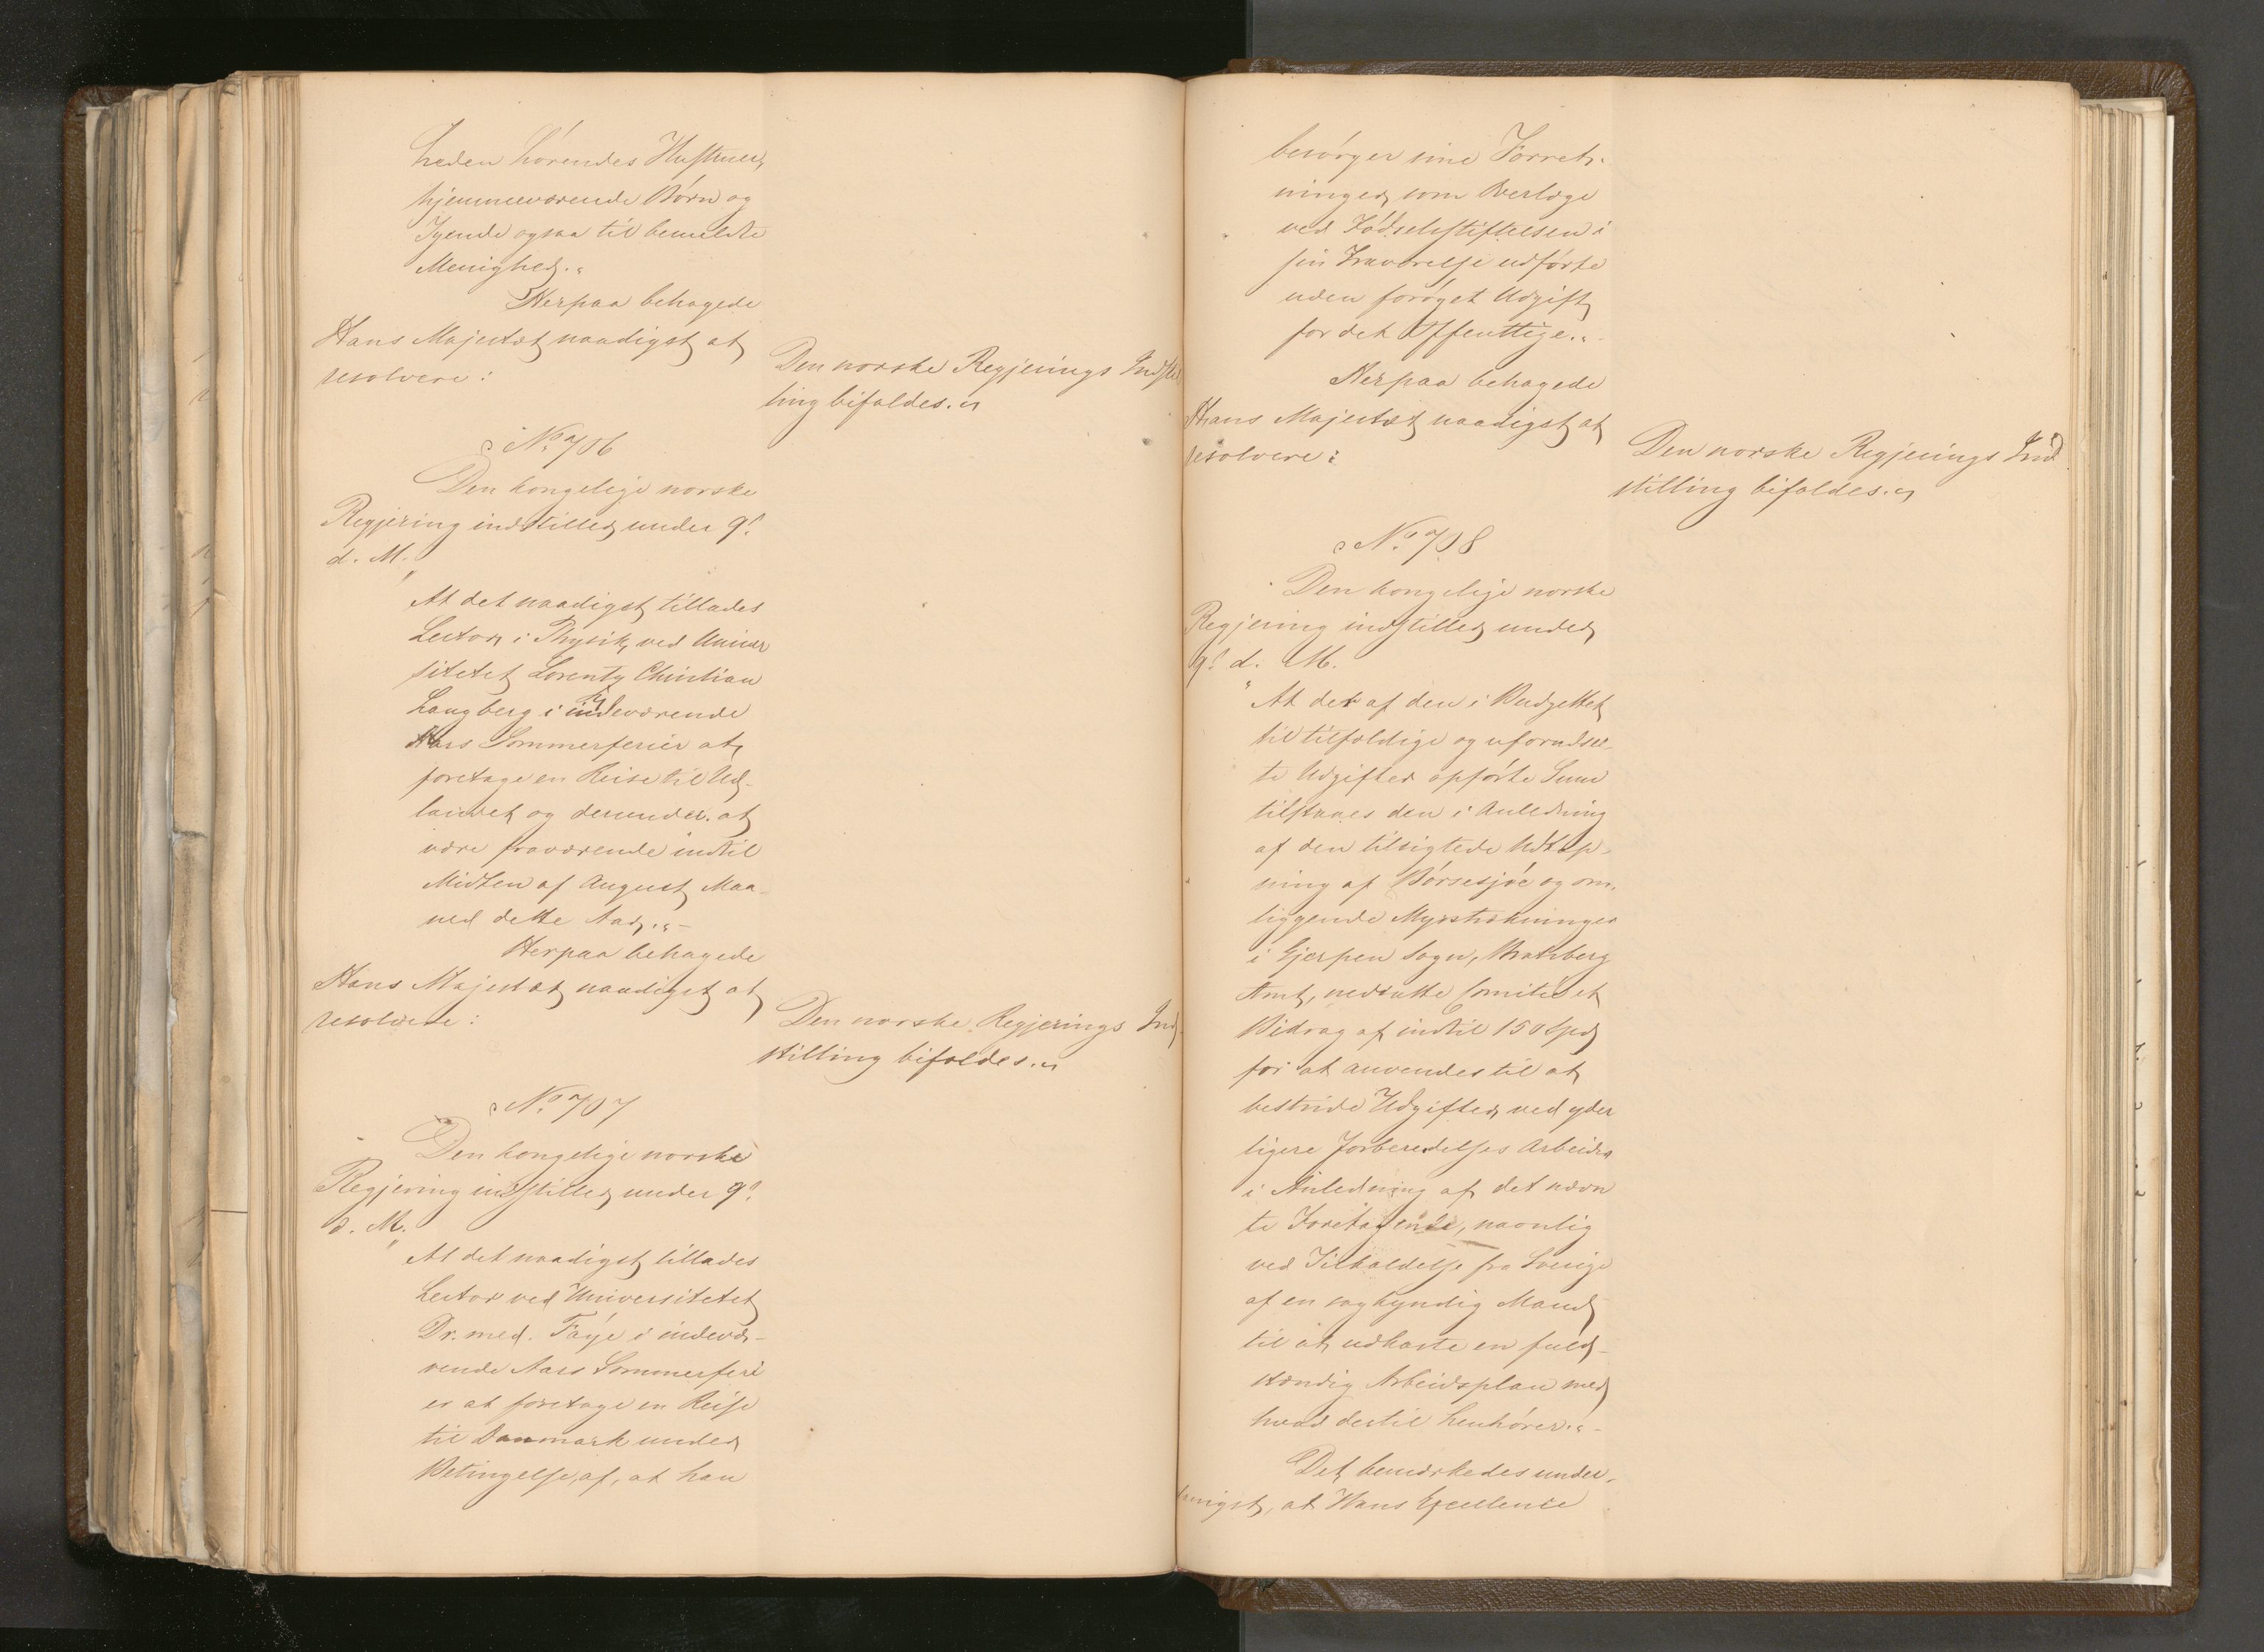 heden hørendes Hustruer,
hjemmeværende Børn og
Tyende ogsaa til bemeldte
Menighed."
Herpaa behagede
Hans Majestæt naadigst at
resolvere:
Den norske Regjerings Indstil
ling bifaldes."
No 706
Den kongelige norske
Regjering indstiller under 9de
d. M.
"At det naadigst tillades
Lector i Physik ved Univer
sitetet Lorentz Christian
Langberg i indeværende
Aars Sommerferier at
foretage en Reise til Ud-
landet og derunder at
være fraværende indtil
Midten af August Maa-
ned dette Aar."-
Herpaa behagede
Hans Majestæt naadigst at
resolvere:
Den norske Regjerings Ind-
stilling bifaldes."
No 707
Den kongelige norske
Regjering indstiller under 9de
d. M.
"At det naadigst tillades
Lector ved Universitetet
Dr. med. Faye i indevæ-
rende Aars Sommerferi
er at foretage en Reise
til Danmark under
Betingelse af, at han
besørger sine Forret-
ninger som Overlæge
ved Fødselsstiftelsen i
sin Fraværelse udførte
uden forøget Udgift
for det Offentlige."
Herpaa behagede
Hans Majestæt naadigst at
resolvere:
Den norske Regjerings Ind
stilling bifaldes."
No 708
Den kongelige norske
Regjering indstiller under
9de d. M.
"At der af den i Budgettet
til tilfældige og uforudsee-
te Udgifter opførte Sum
tilstaaes den i Anledning
af den tilsigtede Udtap-
ning af Børsesjøe og om-
liggende Myrstrækninger
i Gjerpen Sogn, Bratsberg
Amt, nedsatte Comité et
Bidrag af indtil 150 Spd
for at anvendes til at
bestride Udgifter ved yder
ligere Forberedelses Arbeider
i Anledning af det nævn
te Foretagende, navnlig
ved Tilkaldelse fra Sverige
af en sagkyndig Mand
til at udkaste en fuld-
stændig Arbeidsplan med
hvad dertil henhører."-
Det bemærkedes under-
danigst, at Hans Excellence